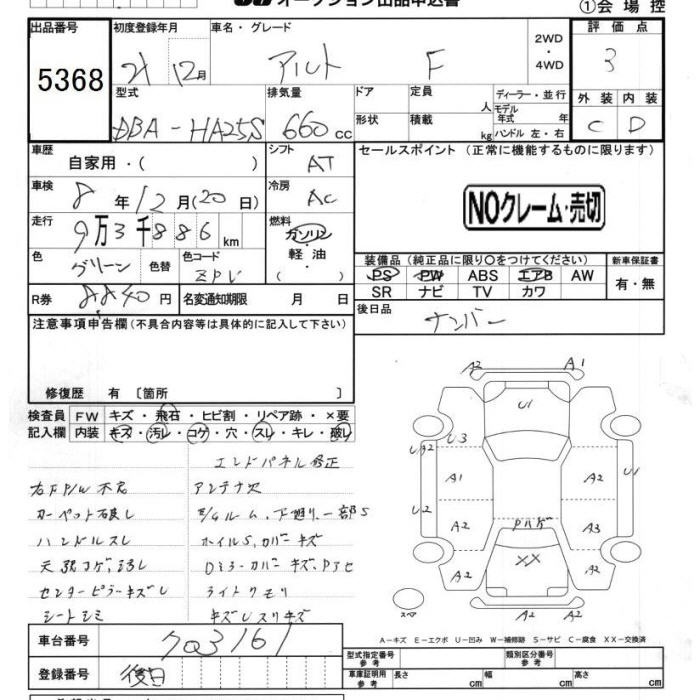 オークション出品申込書
①会場控
出品番号
5368
初度登録年月
21 12月
車名・グレード
アルト F
2WD
・
4WD
評価点
3
型式
DBA-HA25S
排気量
660cc
ドア
形状
定員
人
積載
kg
ディーラー・並行
モデル
年式 年
ハンドル 左・右
外装 内装
C D
車歴
自家用・( )
シフト
AT
セールスポイント (正常に機能するものに限ります)
NOクレーム・売切
車検
8年12月(20日)
冷房
AC
走行
9万3千886km
燃料
ガソリン
軽油
( )
色
グリーン
色替
色コード
ZPV
装備品(純正品に限り○をつけてください)
PS PW ABS エアB AW
SR ナビ TV カワ
新車保証書
有・無
R券
8840円
名変通知期限 月 日
後日品
ナンバー
注意事項申告欄(不具合内容等は具体的に記入して下さい)
修復歴 有 〔箇所 〕
検査員
記入欄
FW キズ・飛石・ヒビ割・リペア跡・×要
内装 キズ・汚レ・コゲ・穴・スレ・キレ・破レ
エンドパネル修正
右FP/W不良 アンテナ欠
カーペット破レ E/Gルーム、下廻リ、一部S
ハンドルスレ ホイルS、カバーキズ
天張コゲ、汚レ DミラーカバーキズPアセ
センターピラーキズU ライトクモリ
シートシミ キズUスリキズ
A2 A1
U1
UA2 U3 U1
A1 A2
U2 A2 A3
Pハゲ
XX
A2 A2
スペ
A2 A2
A-キズ E-エクボ U-凹み W-補修跡 S-サビ C-腐食 XX-交換済
車台番号
703161
型式指定番号
参考
類別区分番号
参考
登録番号
後日
車庫証明用
参考
長さ cm 幅 cm 高さ cm